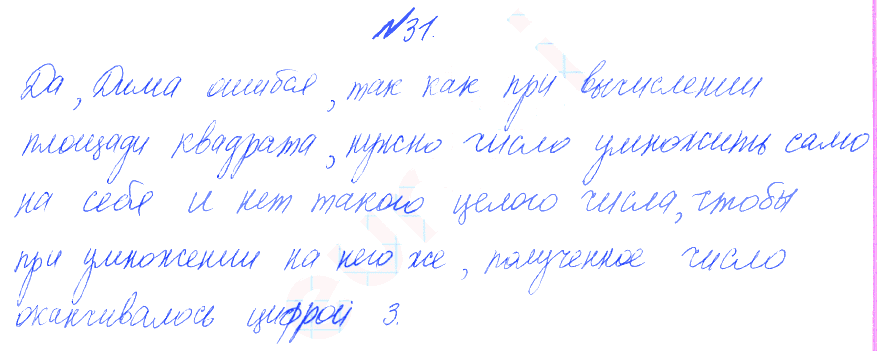 №31.
Да, Дима ошибся, так как при вычислении
площади квадрата, нужно число умножить само
на себя и нет такого целого числа, чтобы
при умножении на него же, полученное число
оканчивалось цифрой 3.